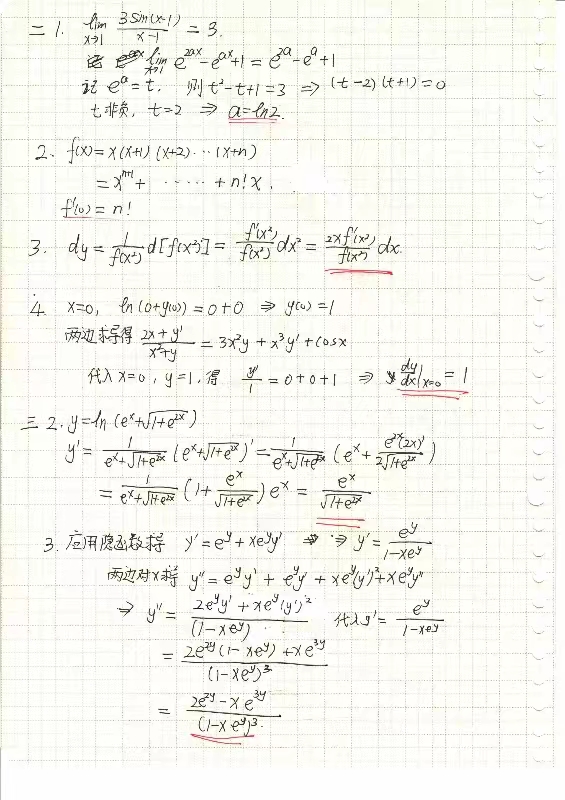 二 1. lim_{x→1} 3sin(x-1)/(x-1) = 3.
lim_{x→1} e^{2ax} - e^{ax} + 1 = e^{2a} - e^{a} + 1
记 e^a = t, 则 t² - t + 1 = 3 ⇒ (t-2)(t+1) = 0
t非负, t=2 ⇒ a = ln2.
2. f(x) = x(x+1)(x+2)⋯(x+n)
= x^{n+1} + ⋯⋯ + n! x.
f'(0) = n!
3. dy = 1/f(x²) d[f(x²)] = f'(x²)/f(x²) dx² = 2xf'(x²)/f(x²) dx.
4. x=0, ln(0+y(0)) = 0+0 ⇒ y(0) = 1
两边求导得 (2x+y')/(x²+y) = 3x²y + x³y' + cosx
代入 x=0, y=1, 得 y'/1 = 0+0+1 ⇒ dy/dx|_{x=0} = 1
三 2. y = ln(e^x + √(1+e^{2x}))
y' = 1/(e^x+√(1+e^{2x})) (e^x+√(1+e^{2x}))' = 1/(e^x+√(1+e^{2x})) (e^x + e^{2x}(2x)'/(2√(1+e^{2x})))
= 1/(e^x+√(1+e^{2x})) (1 + e^x/√(1+e^{2x})) e^x = e^x/√(1+e^{2x})
3. 应用隐函数求导 y' = e^y + xe^y y' ⇒ ⇒ y' = e^y/(1-xe^y)
两边对x求导 y'' = e^y y' + e^y y' + xe^y(y')² + xe^y y''
⇒ y'' = (2e^y y' + xe^y(y')²)/(1-xe^y) 代入y' = e^y/(1-xe^y)
= (2e^{2y}(1-xe^y) + xe^{3y})/(1-xe^y)³
= (2e^{2y} - xe^{3y})/(1-xe^y)³.